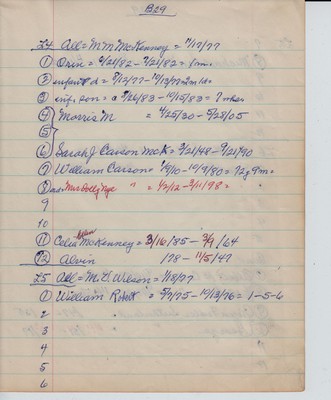 B29
L4 All = M.M. McKenney = 7/17/77
① Orin = 6/21/82 - 7/21/82 = 1m.
② infant d = 8/13/77 - 10/13/77 2m 1d=
③ inf. son = a 9/26/83 - 10/15/83 = ? wks
④ Morris M = 4/25/30 - 5/28/05
5
⑥ Sarah J Carson McK = 3/21/48 - 9/21/90
⑦ William Carson = 1/9/10 - 10/9/80 = 72y 9m =
⑧ Mrs Dolly Nye " = 4/2/12 - 3/11/98 =
9
10
⑪ Celia Ellen McKenney = 3/16/85 - 3/9/64
⑫ Alvin 178 - 11/5/47
L5 All = M.V. Wilson = 1/18/77
① William Robert = 5/7/75 - 10/13/76 = 1-5-6
2 "
3 "
4
5
6